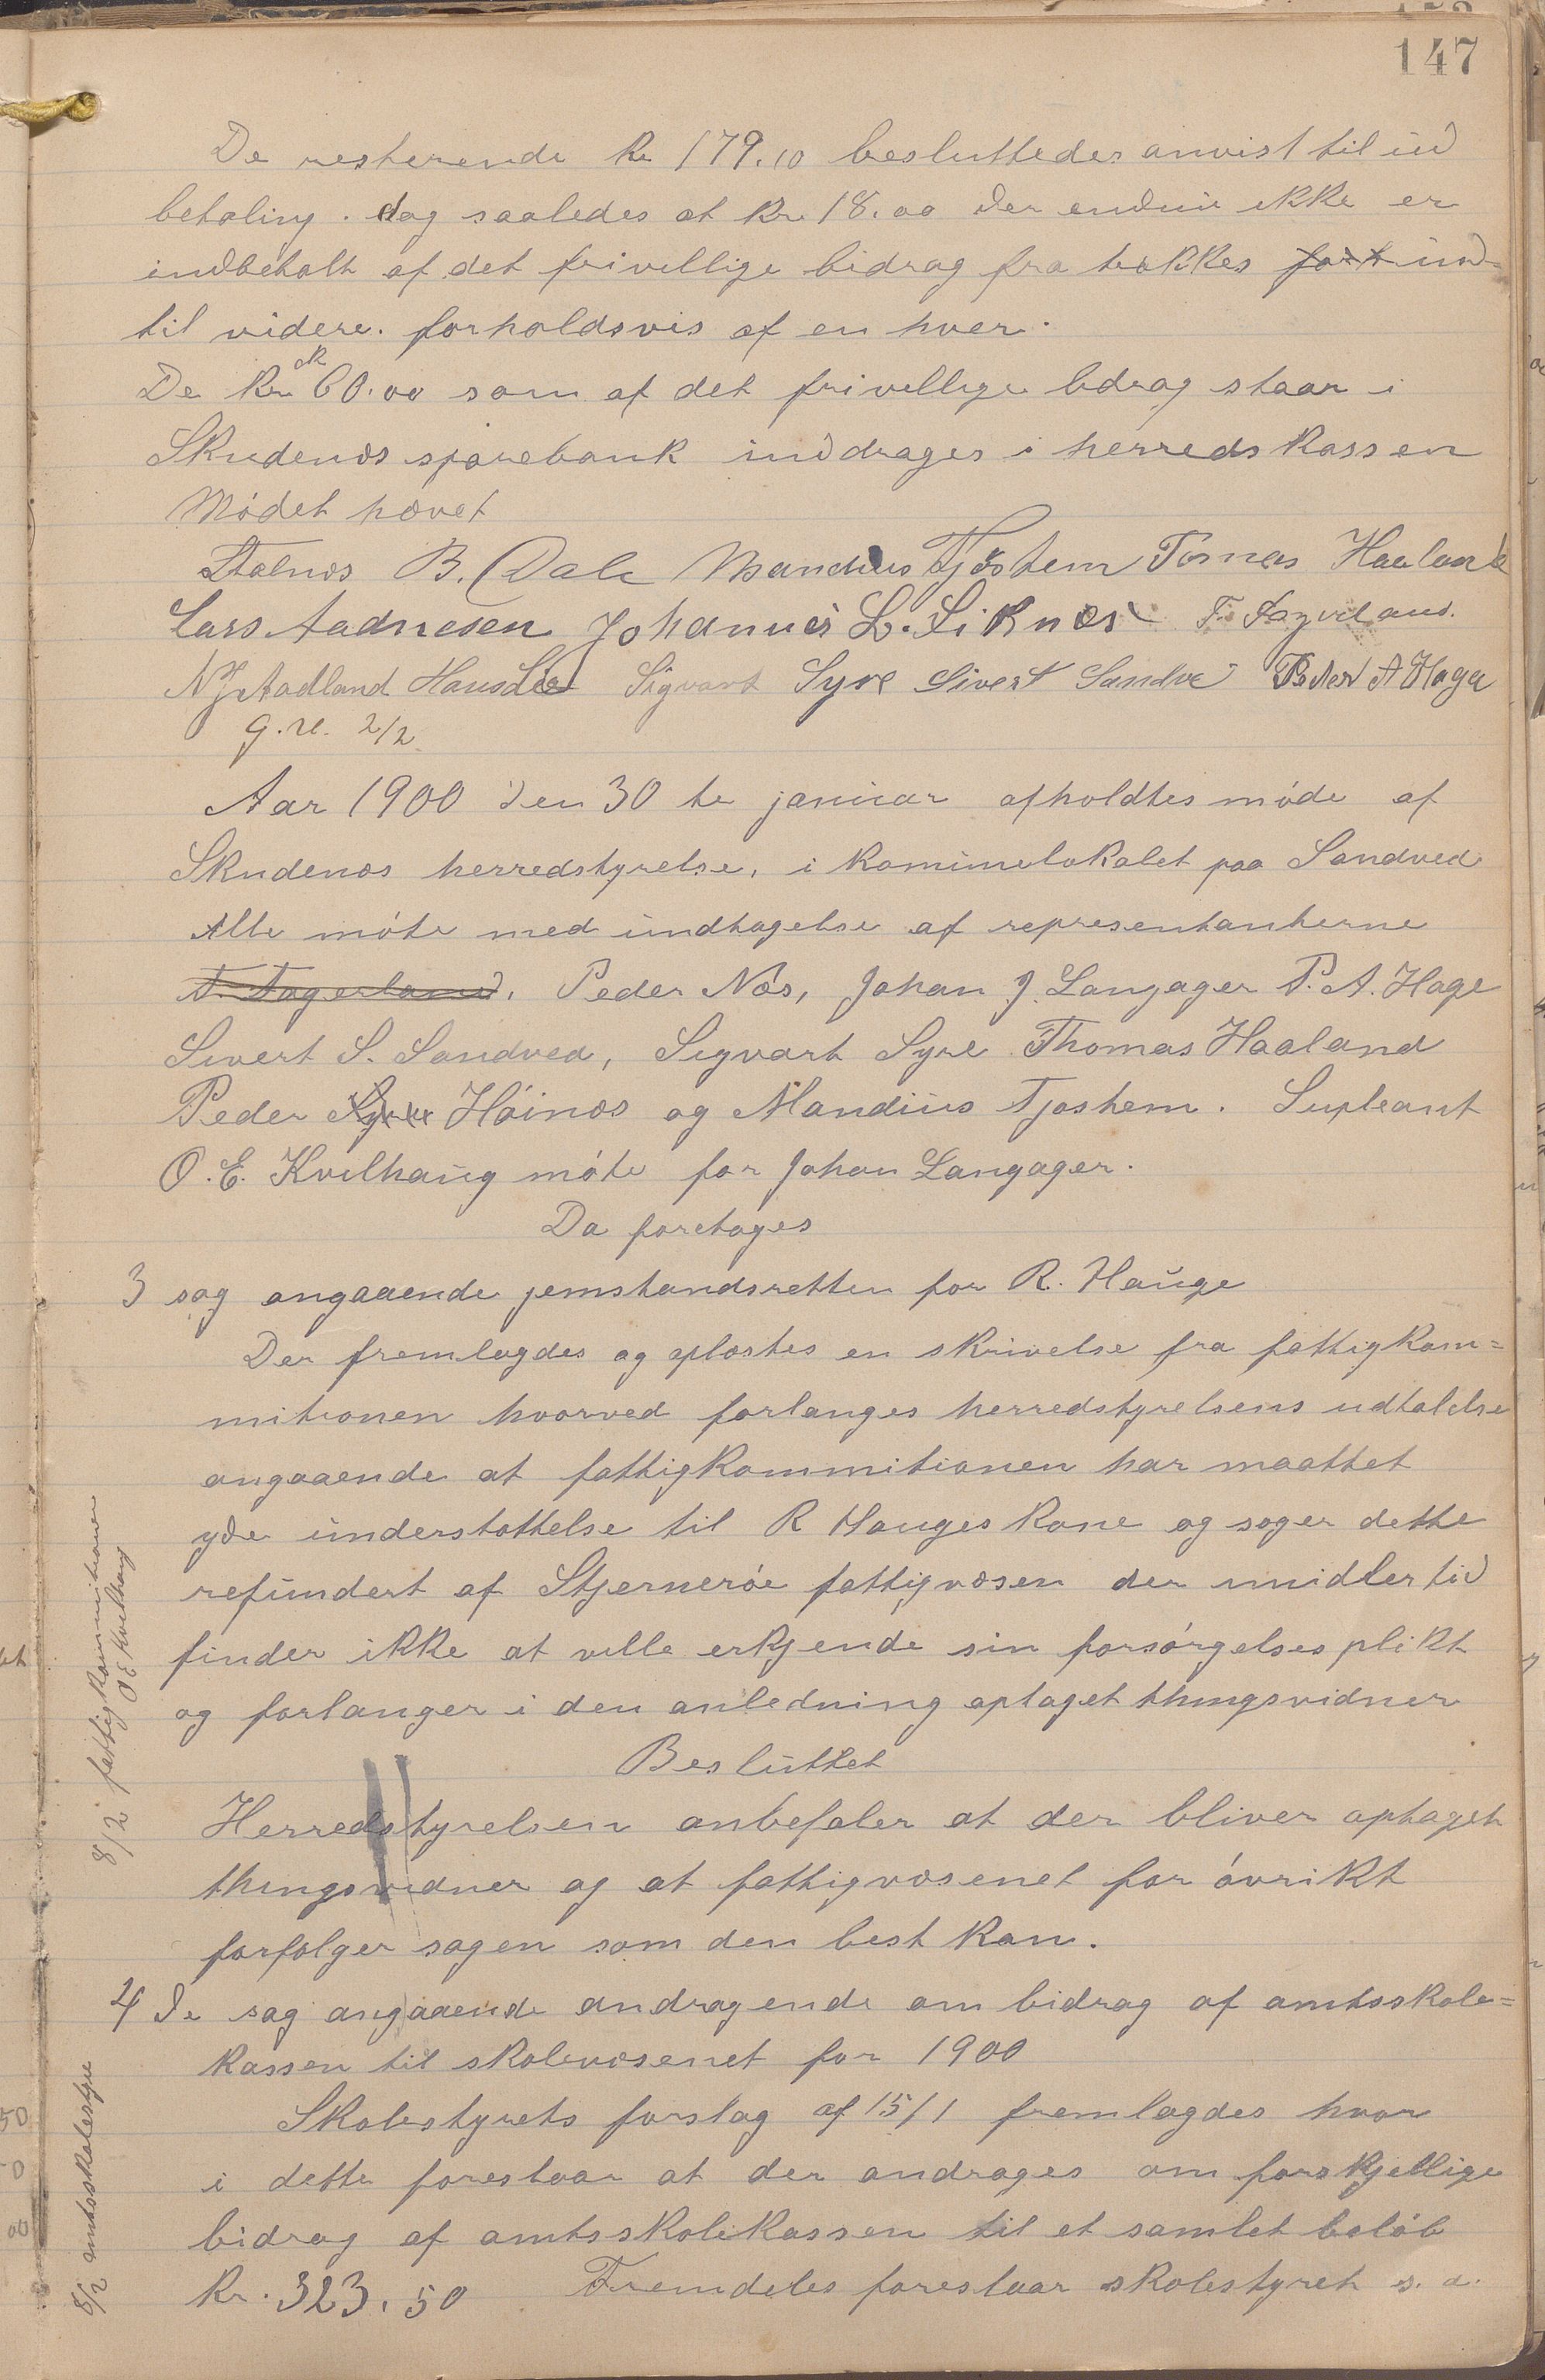 147
De resterende kr 179.10 besluttedes anvist til ind
betaling. dog saaledes at kr. 18.00 der endnu ikke er
indbetalt af det frivillige bidrag fra trækkes ind-
til videre. forholdsvis af en hver.
De kr 60.00 som af det frivillige bdrag staar i
Skudenæs sparebank inddrages i herredskassen
Mödet hævet
Stalnæs B. Dale Mandius Tjøstem Tomas Haaland
Lars Aadnesen Johannes L. Liknæs
N J Aadland Hans Lie Sigvart Syre Sivert Sandve Peder A Haga
2/2
Aar 1900 den 30 te januar afholdtes möde af
Skudenæs herredstyrelse, i komunelokalet paa Sandved
Alle möte med undtagelse af representanterne
T. Fagerland, Peder Næs, Johan J. Langager P. A. Hage
Sivert S. Sandved, Sigvart Syre Thomas Haaland
Peder Höinæs og Mandius Tjøshem. Supleant
O. E. Kvilhaug möte for Johan Langager.
Da foretoges
3 sag angaaende jemstandsretten for R. Hauge
Der fremlagdes og oplæstes en skrivelse fra fattigkom=
mitionen hvorved forlanges herredstyrelsens udtalelse
angaaende at fattigkommitionen har maattet
yde understøttelse til R Hauges kone og søger dette
refundert af Stjerneröe fattigvæsen der imidlertid
finder ikke at ville erkjende sin forsörgelsesplikt
og forlanger i den anledning optaget thingsvidner
Besluttet
Herredstyrelsen anbefaler at der bliver optaget
thingsvidner og at fattigvæsenet for övrikt
forfølger sagen som den best kan.
4 de sag angaaende andragende om bidrag af amtsskole=
kassen til skolevæsenet for 1900
Skolestyrets forslag af 15/1 fremlagdes hvor
i dette foreslaar at der andrages om forskjellige
bidrag af amtsskolekassen til et samlet beløb
kr. 323.50 Fremdeles foreslaar skolestyret s. a.
8/2 fattigkommitionen
O E Kvilhaug
8/2 amtsskolestyre